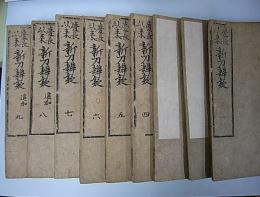 慶長以来
新刀辨疑
慶長以来
新刀辨疑
四
慶長以来
新刀辨疑
五
慶長以来
新刀辨疑
六
慶長以来
新刀辨疑
七
慶長以来
新刀辨疑
追加
八
慶長以来
新刀辨疑
追加
九